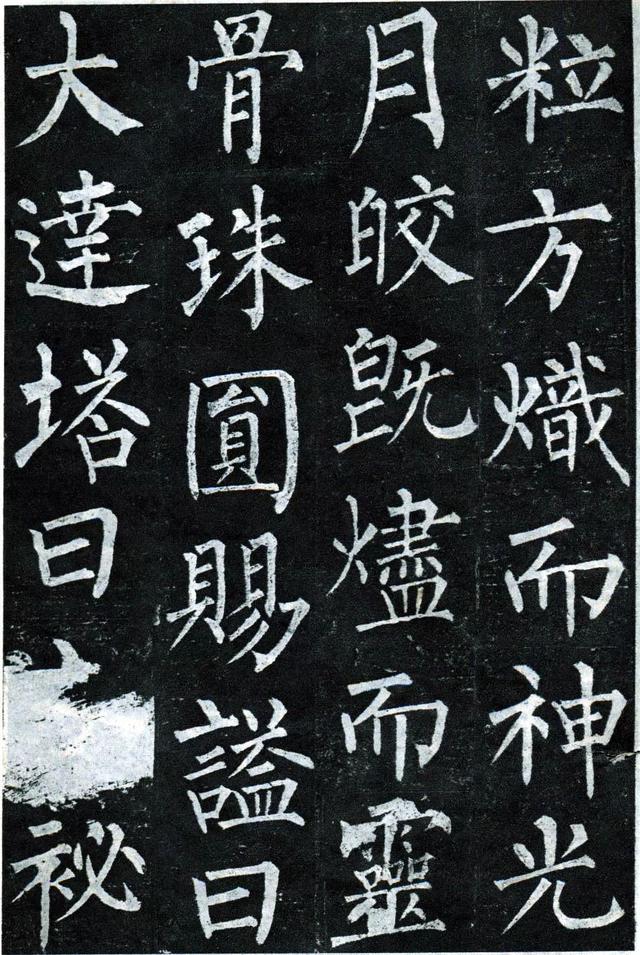 粒方熾而神光
月皎旣燼而靈
骨珠圓賜謚曰
大達塔曰秘